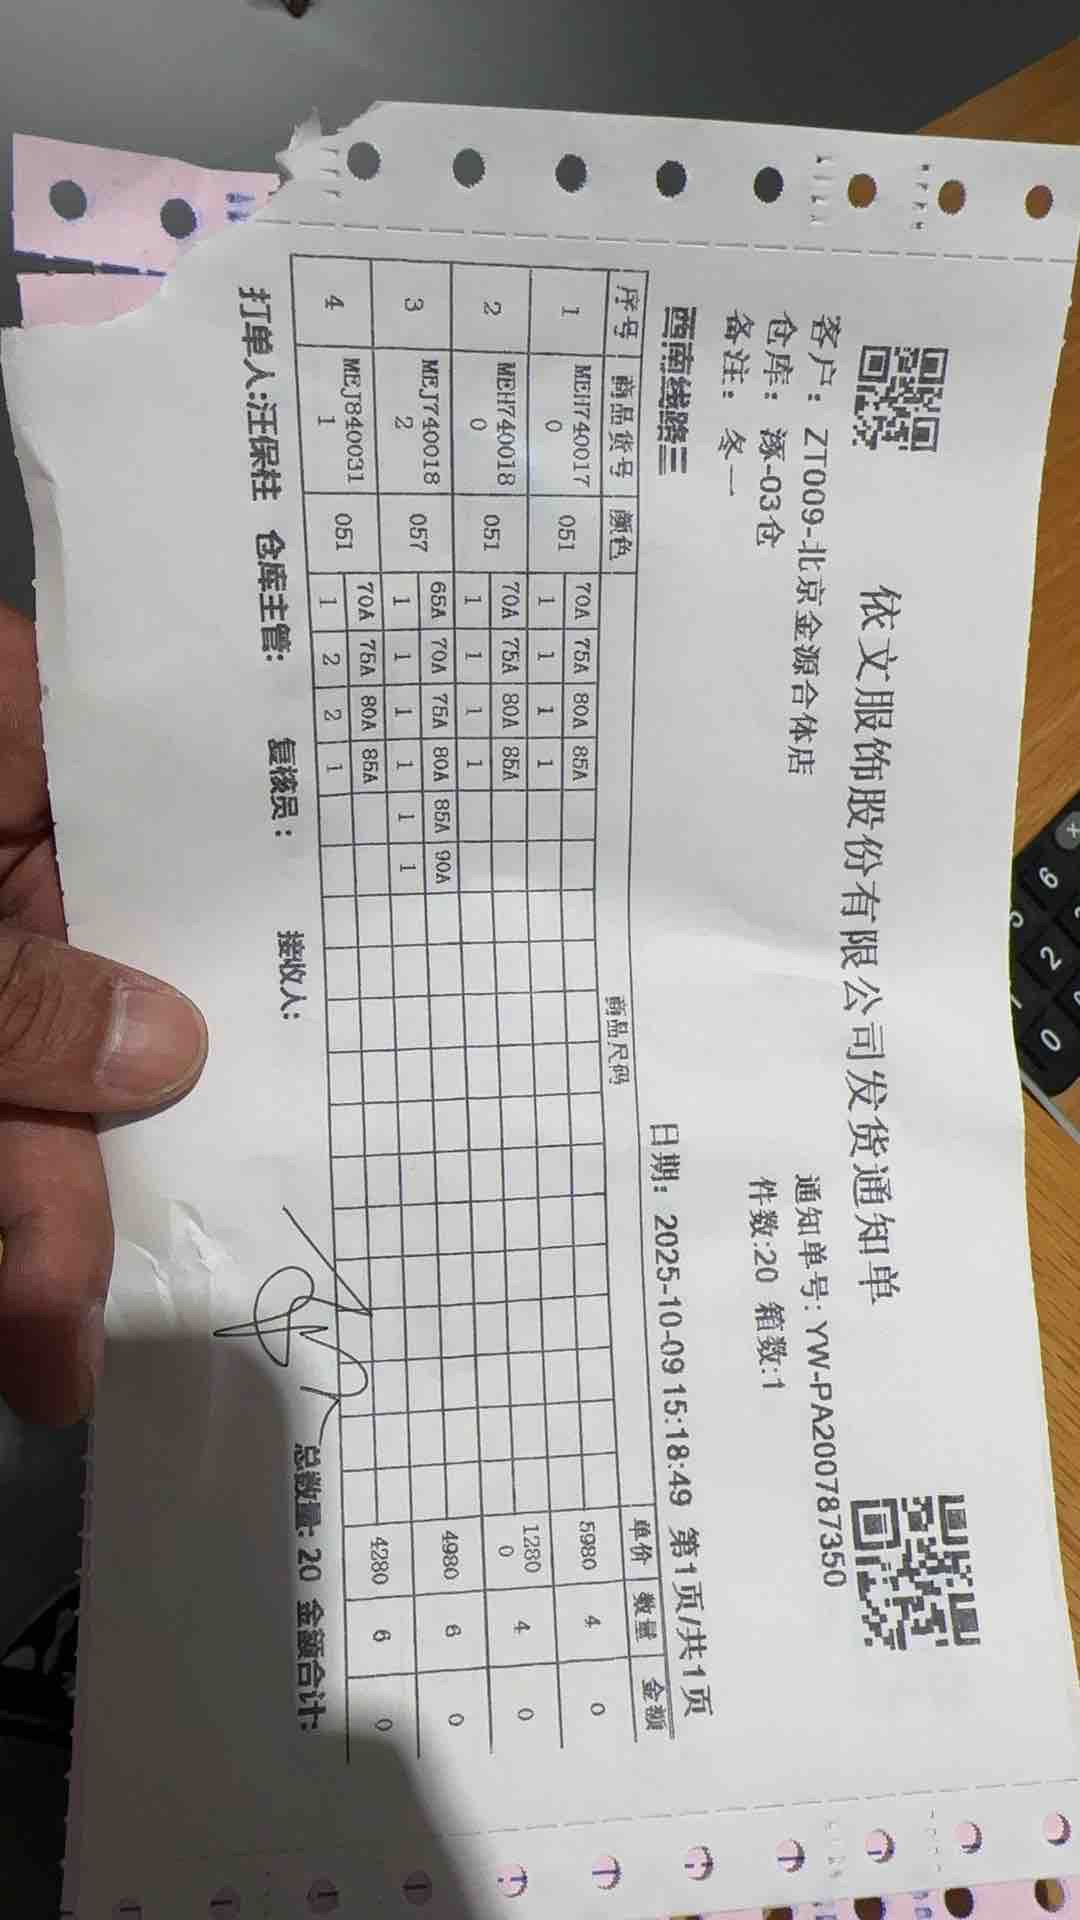 依文服饰股份有限公司发货通知单
客户：ZT009-北京金源合体店 通知单号：YW-PA200787350
仓库：涿-03仓 件数:20 箱数:1
备注：冬一
西南线路三 日期：2025-10-09 15:18:49 第1页/共1页
序号 商品货号 颜色 商品尺码 单价 数量 金额
1 MEH7400170 051 70A 75A 80A 85A 5980 4 0
1 1 1 1
2 MEH7400180 051 70A 75A 80A 85A 12800 4 0
1 1 1 1
3 MEJ7400182 057 65A 70A 75A 80A 85A 90A 4980 6 0
1 1 1 1 1 1
4 MEJ8400311 051 70A 75A 80A 85A 4280 6 0
1 2 2 1
打单人:汪保柱 仓库主管: 复核员： 接收人: 总数量: 20 金额合计:
6
2
0